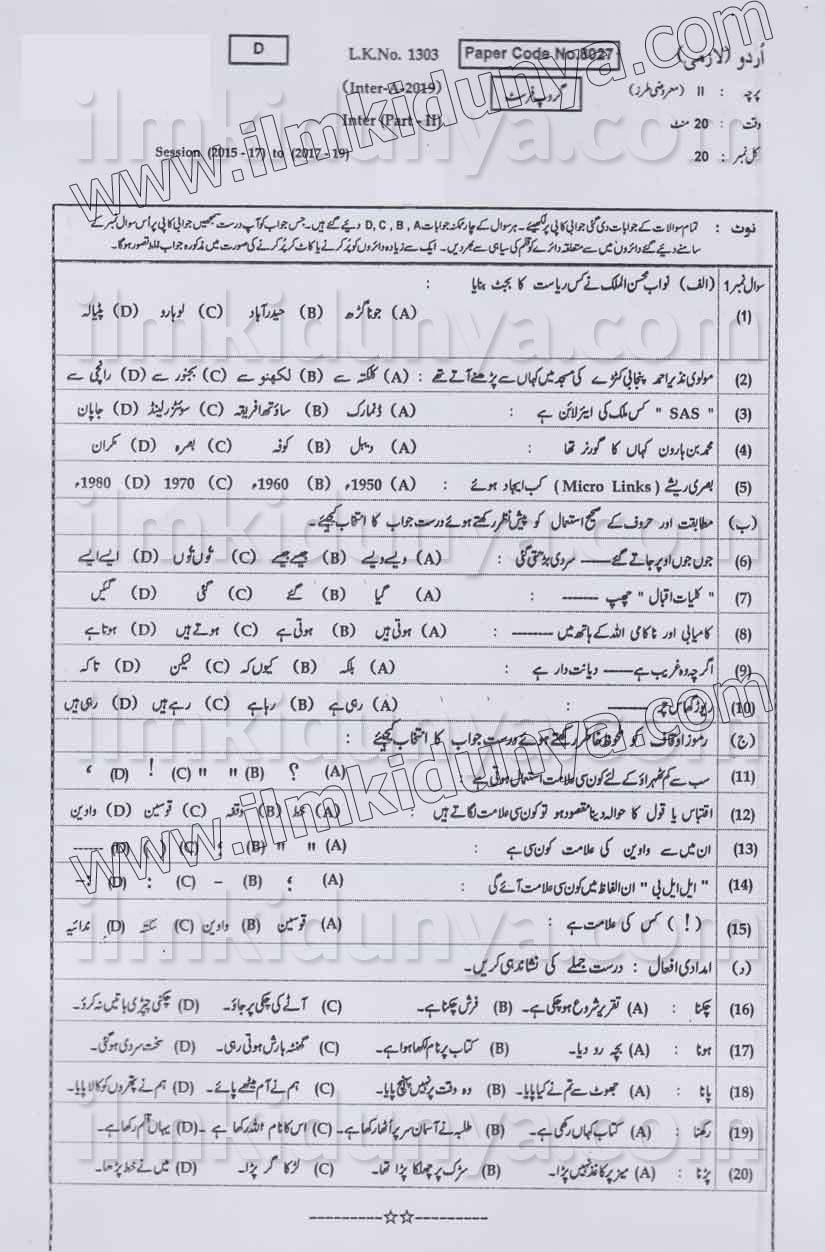 اُردو (لازمی) Paper Code No.6027 L.K.No. 1303 D
پرچہ : II (معروضی طرز) گروپ فرسٹ (Inter-A-2019)
وقت : 20 منٹ Inter (Part - II)
کل نمبر : 20 Session (2015 - 17) to (2017 - 19)
نوٹ : تمام سوالات کے جوابات دی گئی جوابی کاپی پر لکھیئے۔ ہر سوال کے چار ممکنہ جوابات D, C, B, A دیئے گئے ہیں۔ جس جواب کو آپ درست سمجھیں جوابی کاپی پر اُس سوال نمبر کے
سامنے دیئے گئے دائروں میں سے متعلقہ دائرے کو قلم کی سیاہی سے بھر دیں۔ ایک سے زیادہ دائروں کو پُر کرنے یا کاٹ کر پُر کرنے کی صورت میں مذکورہ جواب غلط تصور ہوگا۔
سوال نمبر 1 (الف) نواب محسن الملک نے کس ریاست کا بجٹ بنایا :
(1) (A) جوناگڑھ (B) حیدر آباد (C) لوہارو (D) پٹیالہ
(2) مولوی نذیر احمد پنجابی کٹڑے کی مسجد میں کہاں سے پڑھنے آتے تھے : (A) کلکتہ سے (B) لکھنو سے (C) بجنور سے (D) رانچی سے
(3) " SAS " کس ملک کی ایئر لائن ہے : (A) ڈنمارک (B) ساؤتھ افریقہ (C) سوئٹزرلینڈ (D) جاپان
(4) محمد بن ہارون کہاں کا گورنر تھا : (A) دیبل (B) کوفہ (C) بصرہ (D) مکران
(5) بصری ریشے ( Micro Links ) کب ایجاد ہوئے : (A) 1950ء (B) 1960ء (C) 1970 (D) 1980ء
(ب) مطابقت اور حروف کے صحیح استعمال کو پیش نظر رکھتے ہوئے درست جواب کا انتخاب کیجئے۔
(6) جوں جوں اوپر جاتے گئے —— سردی بڑھتی گئی : (A) ویسے ویسے (B) جیسے جیسے (C) توں توں (D) ایسے ایسے
(7) " کلیات اقبال " چھپ ------- : (A) گیا (B) گئے (C) گئی (D) گئیں
(8) کامیابی اور ناکامی اللہ کے ہاتھ میں -------- : (A) ہوتی ہیں (B) ہوتی ہے (C) ہوتے ہیں (D) ہوتا ہے
(9) اگرچہ وہ غریب ہے —— دیانت دار ہے : (A) بلکہ (B) کیوں کہ (C) لیکن (D) تاکہ
(10) ریوڑ گھاس چر -------- : (A) رہی ہے (B) رہا ہے (C) رہے ہیں (D) رہی ہیں
(ج) رموز اوقاف کو ملحوظ خاطر رکھتے ہوئے درست جواب کا انتخاب کیجئے :
(11) سب سے کم ٹھہراؤ کے لئے کون سی علامت استعمال ہوتی ہے : (A) ؟ (B) " " (C) ! (D) ،
(12) اقتباس یا قول کا حوالہ دینا مقصود ہو تو کون سی علامت لگاتے ہیں : (A) خط (B) وقفہ (C) قوسین (D) واوین
(13) ان میں سے واوین کی علامت کون سی ہے : (A) " " (B) ؛ (C) ( ) (D) ----
(14) " ایل ایل بی " ان الفاظ میں کون سی علامت آئے گی : (A) ؛ (B) - (C) : (D) :-
(15) ( ! ) کس کی علامت ہے : (A) قوسین (B) واوین (C) سکتہ (D) ندائیہ
(د) امدادی افعال : درست جملے کی نشاندہی کریں۔
(16) چکنا : (A) تقریر شروع ہو چکی ہے۔ (B) فرش چکنا ہے۔ (C) آٹے کی چکی پر جاؤ۔ (D) چکنی چپڑی باتیں نہ کرو۔
(17) ہونا : (A) بچہ رو دیا۔ (B) کتاب پر نام لکھا ہوا ہے۔ (C) گھنٹہ بارش ہوتی رہی۔ (D) سخت سردی ہو گئی۔
(18) پانا : (A) جھوٹ سے تم نے کیا پایا۔ (B) وہ وقت پر نہیں پہنچ پایا۔ (C) ہم نے آم میٹھے پائے۔ (D) ہم نے پتھروں کو کالا پایا۔
(19) رکھنا : (A) کتاب کہاں رکھی ہے۔ (B) طلبہ نے آسمان سر پر اُٹھا رکھا ہے۔ (C) اس کا نام اللہ رکھا ہے۔ (D) یہاں قلم رکھا ہے۔
(20) پڑنا : (A) میز پر کاغذ نہیں پڑا۔ (B) سڑک پر چھلکا پڑا تھا۔ (C) لڑکا گر پڑا۔ (D) میں نے خط پڑھا۔
---------☆☆---------
www.ilmkidunya.com
www.ilmkidunya.com
ilmkidunya.com
ilmkidunya.com
ilmkidunya.com
ilmkidunya.com
ilmkidunya.com
ilmkidunya.com